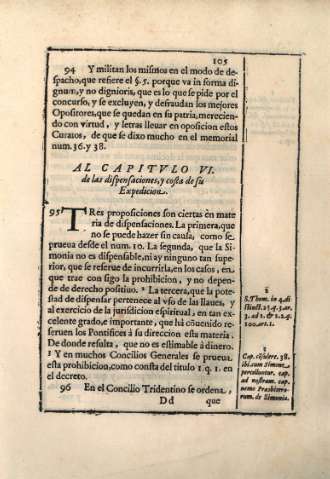 105
94 Y militan los mismos en el modo de despacho, que refiere el §. 5. porque va in forma dignum, y no dignioris, que es lo que se pide por el concurso, y se excluyen, y defraudan los mejores Opositores, que se quedan en su patria, mereciendo con virtud, y letras llevar en oposicion estos Curatos, de que se dixo mucho en el memorial num. 36. y 38.
AL CAPITVLO VI.
de las dispensaciones, y costa de su
Expedicion.
95 TRes proposiciones son ciertas en materia de dispensaciones. La primera, que no se puede hazer sin causa, como se prueua desde el num. 10. La segunda, que la Simonia no es dispensable, ni ay ninguno tan superior, que se reserue de incurrirla, en los casos, en que trae con sigo la prohibicion, y no depende de derecho positiuo. ² La tercera, que la potestad de dispensar pertenece al vso de las llaues, y al exercicio de la jurisdicion espiritual, en tan excelente grado, e importante, que há cõuenido reseruen los Pontifices á su direccion esta materia. De donde resulta, que no es estimable á dinero. ³ Y en muchos Concilios Generales se prueua esta prohibicion, como consta del titulo 1. q. 1. en el decreto.
96 En el Concilio Tridentino se ordena,
Dd que
2
S. Thom. in 4. distinct. 25. q. 3. ar.
3
Cap. cõsidere. 38.
ibi cum Simone
percellentur. cap.
ad nostram. cap.
nemo Presbitero-
rum. de Simonia.